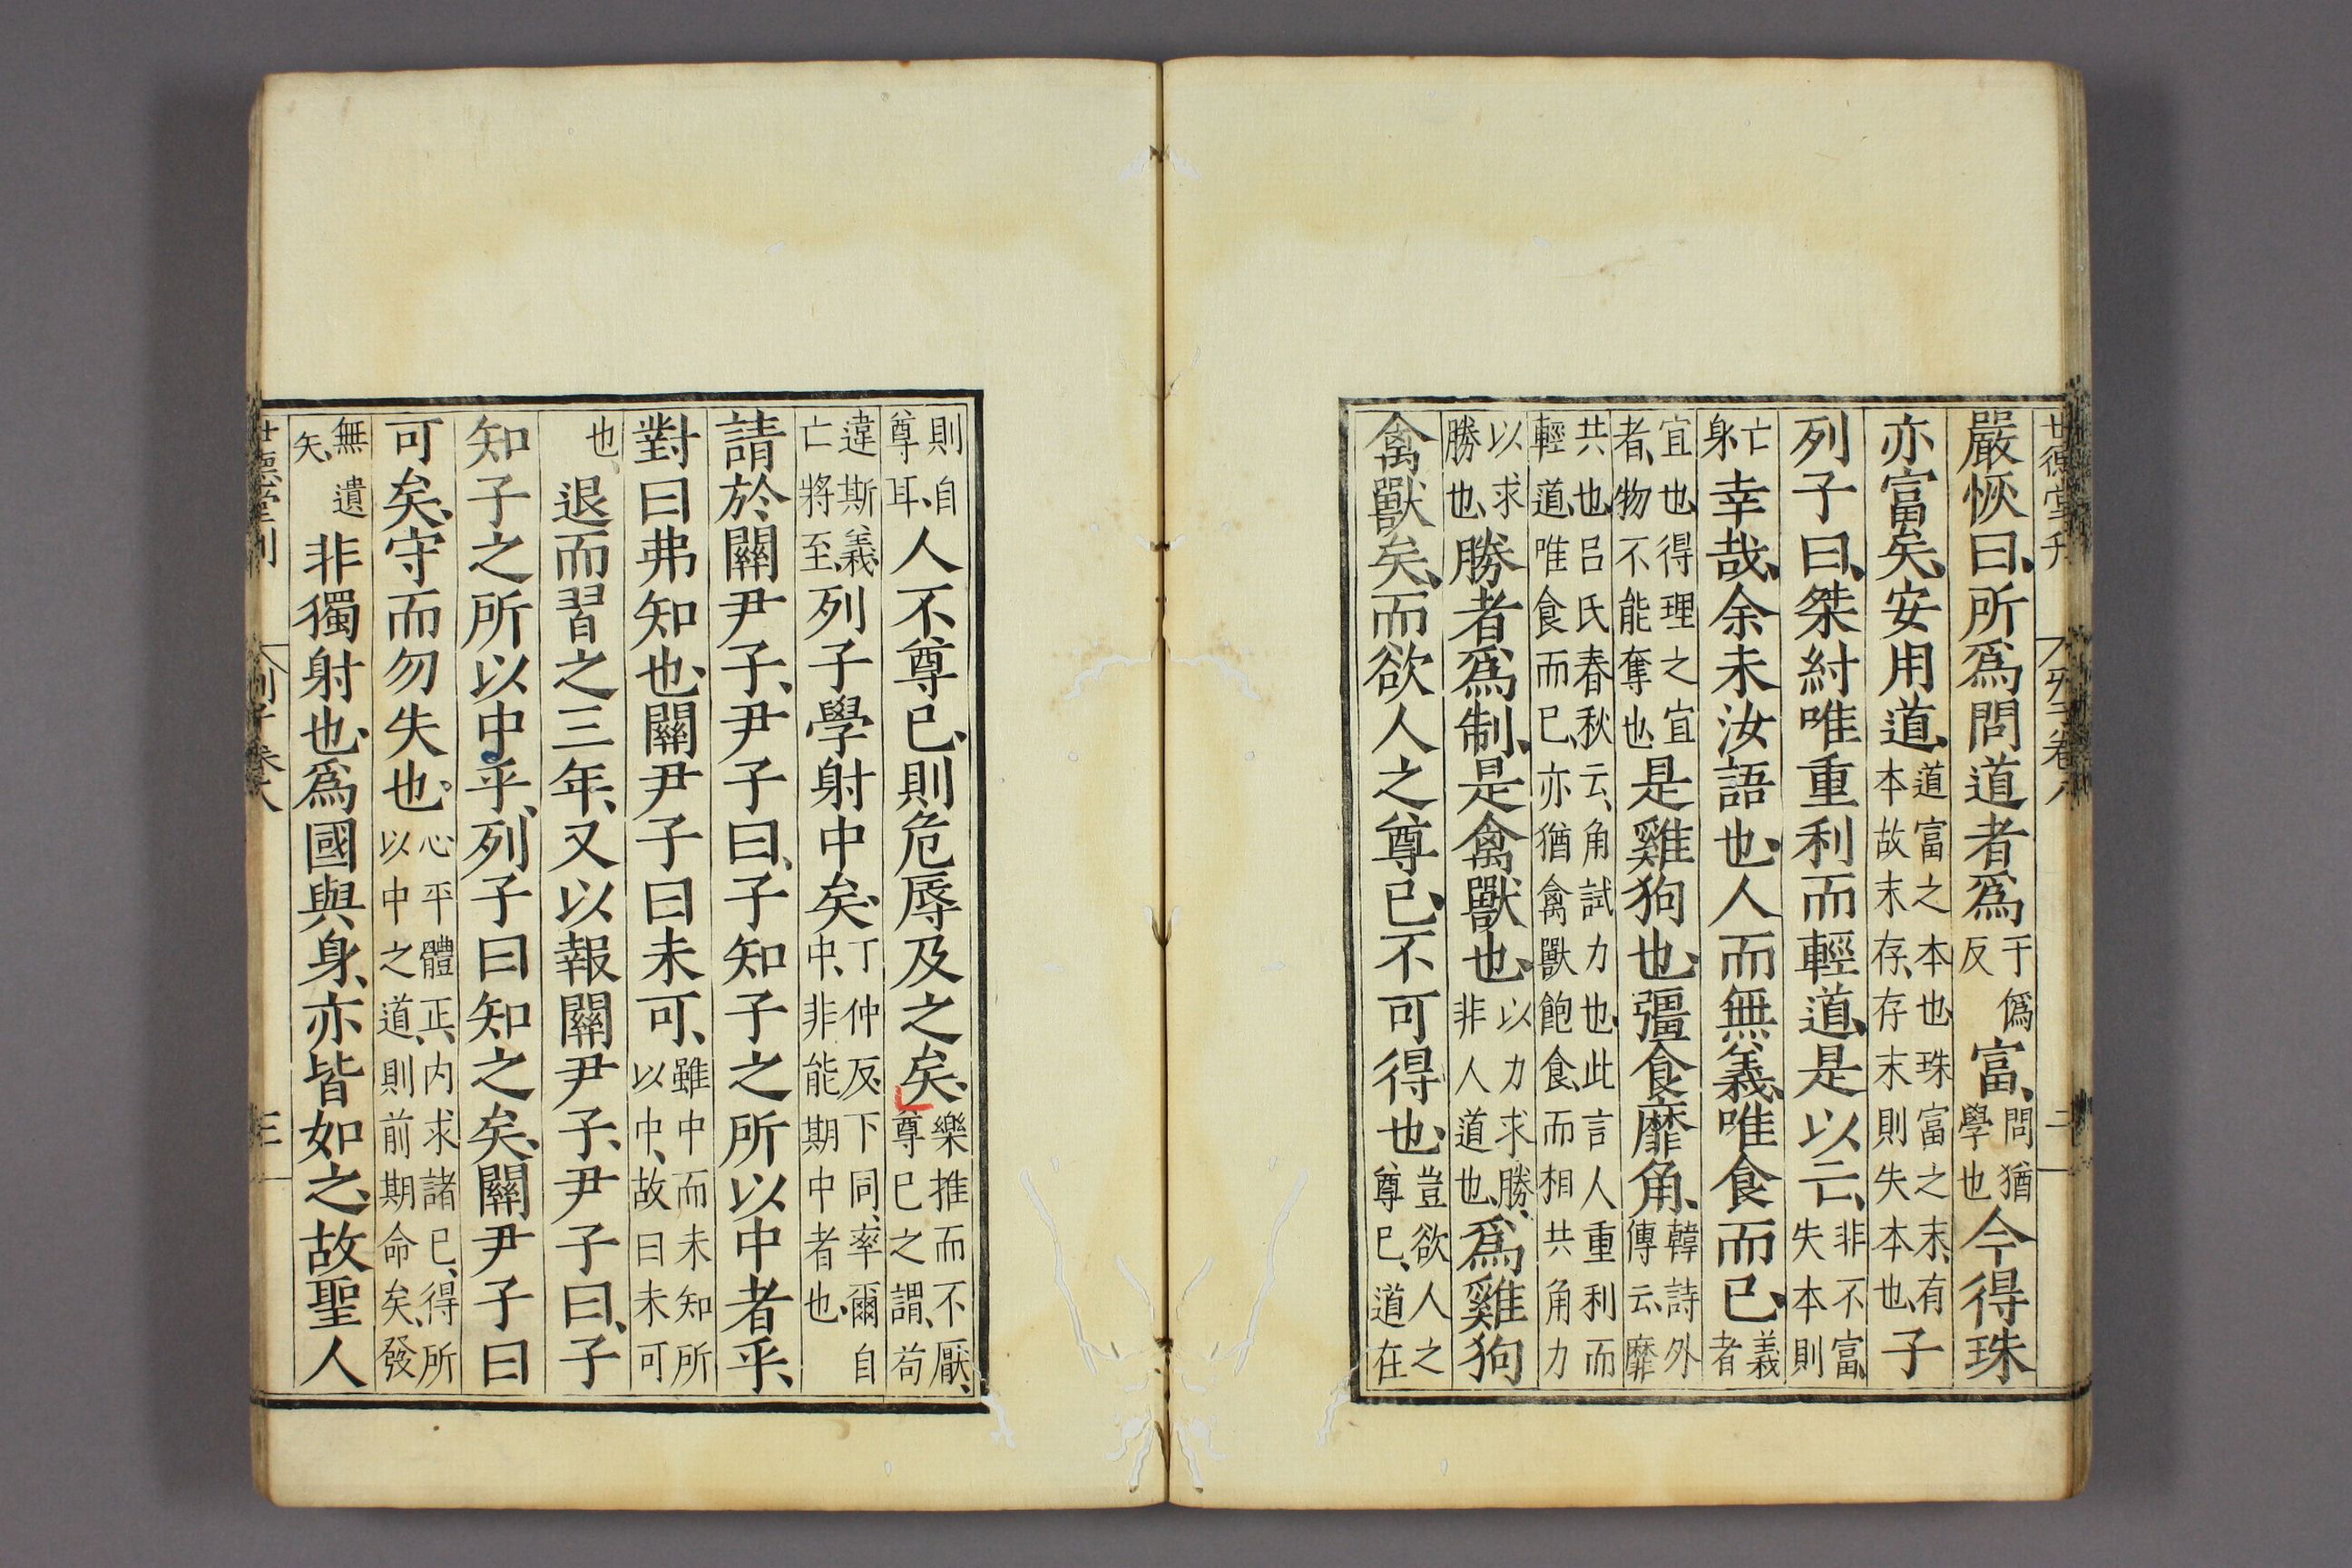 嚴恢曰、所爲問道者爲于僞反富、問猶學也今得珠
亦富矣、安用道、道富之本也珠富之末、有本故末存、存末則失本也、子
列子曰、桀紂唯重利而輕道、是以亡、非不富、失本則
亡身、幸哉、余未汝語也、人而無義、唯食而已、義者
宜也、得理之宜者、物不能奪也、是雞狗也、彊食靡角、韓詩外傳云、靡
共也、呂氏春秋云、角試力也、此言人重利而輕道、唯食而已、亦猶禽獸飽食、而相共角力
以求勝也、勝者爲制、是禽獸也、以力求勝、非人道也、爲雞狗
禽獸矣、而欲人之尊已、不可得也、豈欲人之尊已、道在
則自尊耳、人不尊已、則危辱及之矣、樂推而不厭、尊已之謂、苟
違斯義、亡將至、列子學射中矣、丁仲反、下同、率爾自中、非能期中者也、
請於關尹子、尹子曰、子知子之所以中者乎、
對曰弗知也、關尹子曰未可、雖中而未知所以中、故曰未可
也、退而習之三年、又以報關尹子、尹子曰、子
知子之所以中乎、列子曰知之矣、關尹子曰
可矣、守而勿失也。心平體正、內求諸已、得所以中之道、則前期命矣、發
無遺矣、非獨射也、爲國與身、亦皆如之、故聖人
世德堂刊 列子卷八 三